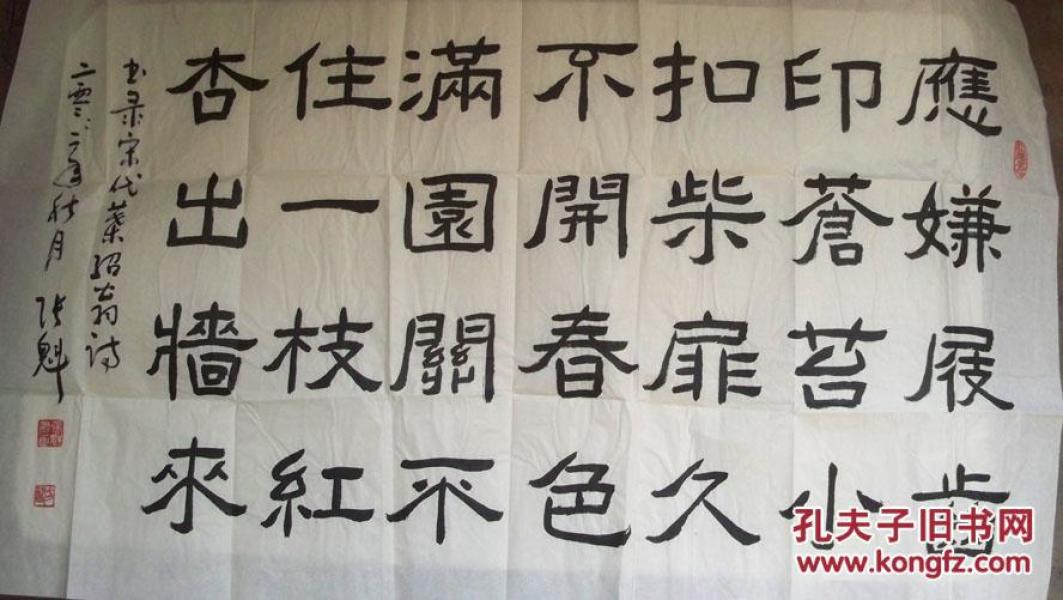 應嫌屐齒
印蒼苔小
扣柴扉久
不開春色
滿園關不
住一枝紅
杏出牆來
书录宋代葉紹翁诗
二零一二年秋月 张魁
孔夫子旧书网
www.kongfz.com